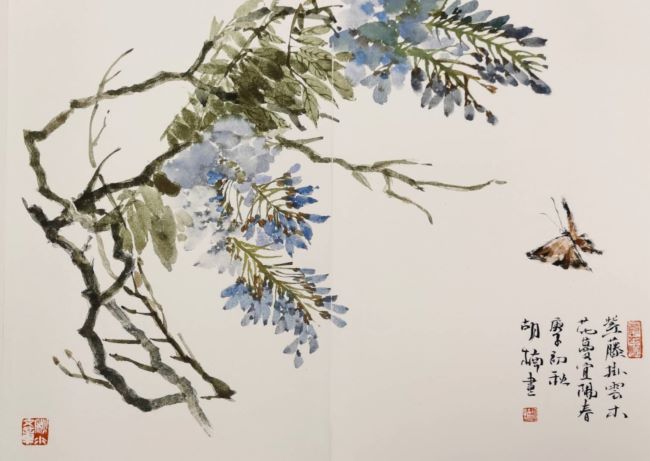 紫藤掛雲木
花蔓宜陽春
庚子初秋
胡楠畫